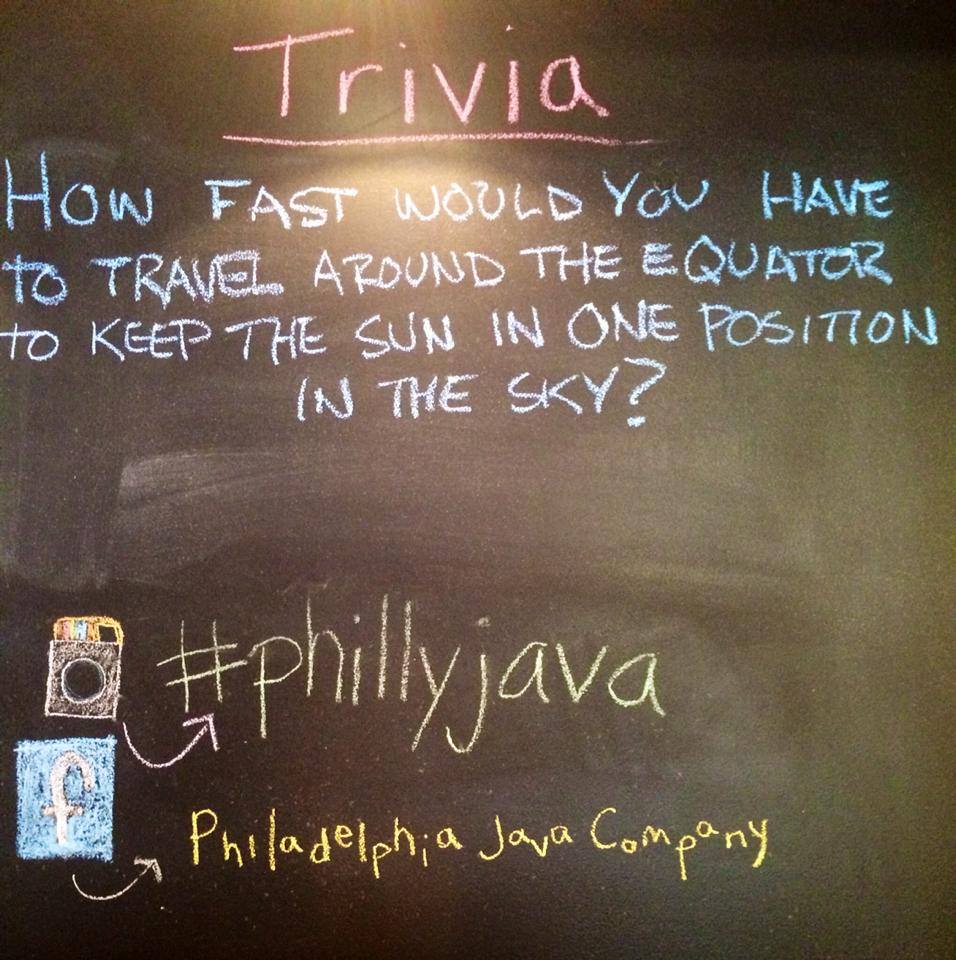 Trivia
HOW FAST WOULD YOU HAVE
TO TRAVEL AROUND THE EQUATOR
TO KEEP THE SUN IN ONE POSITION
IN THE SKY?
#phillyjava
f
Philadelphia Java Company